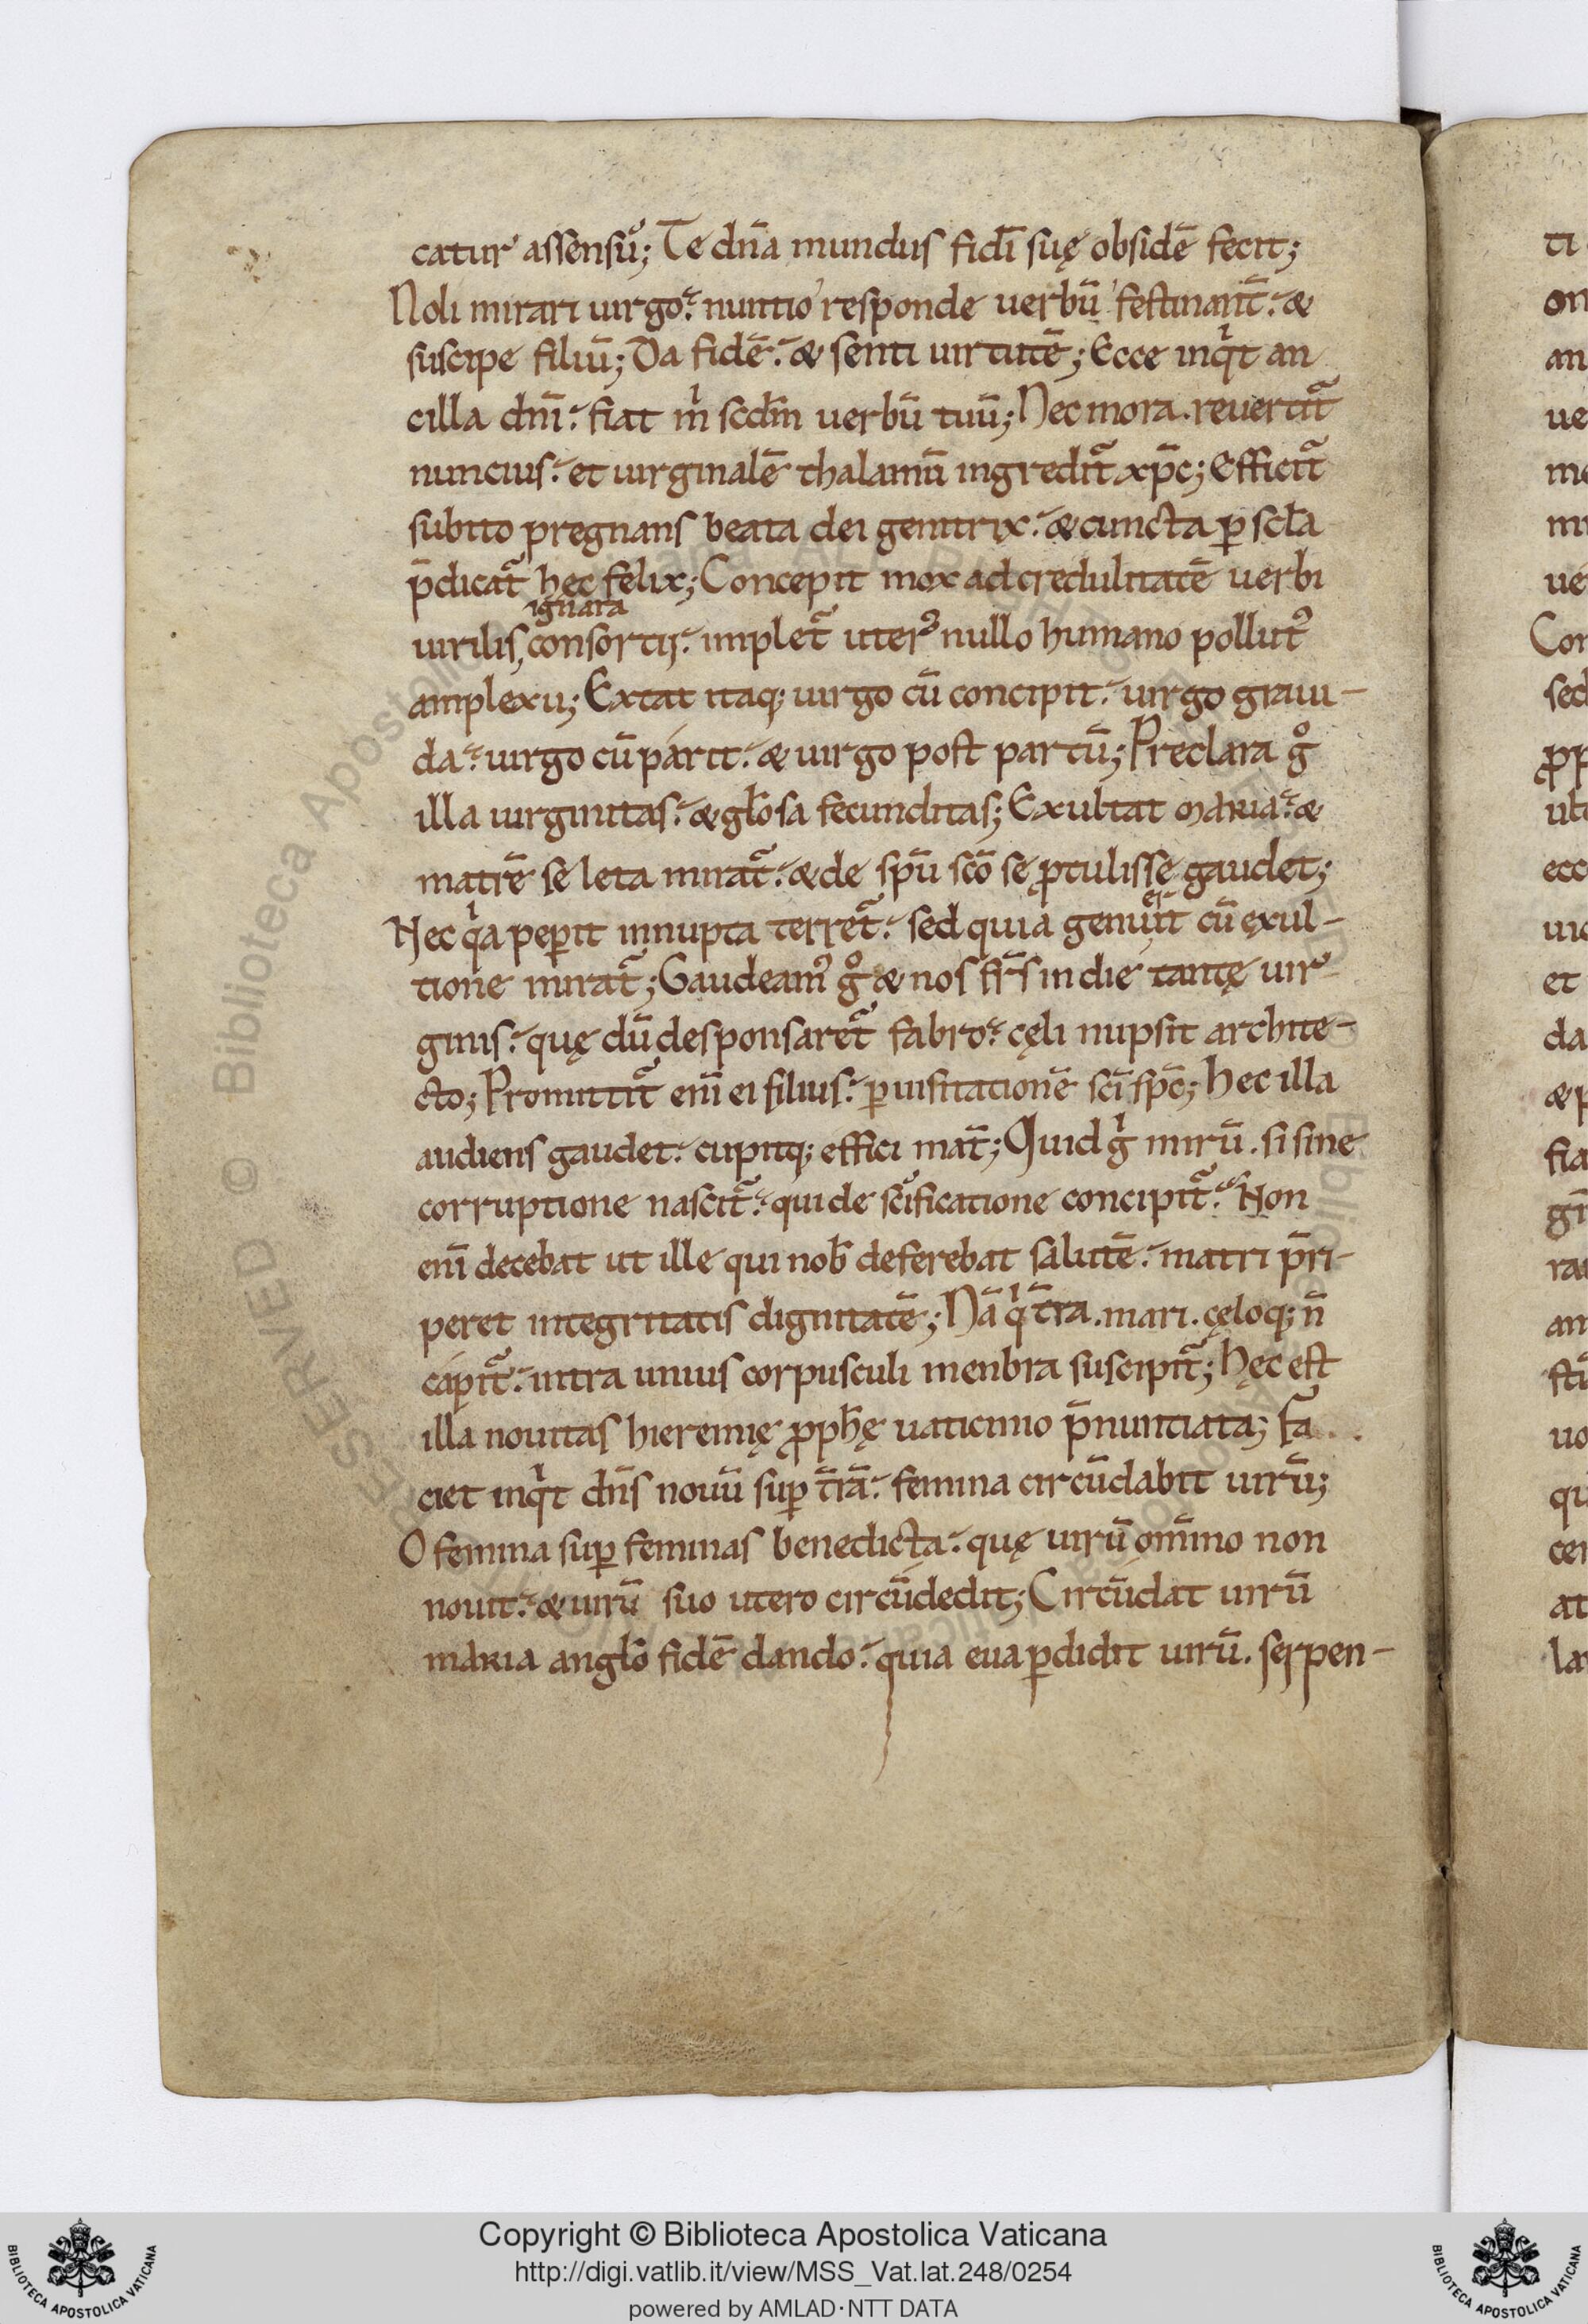 catur assensu᷒; Te dn̄a mundus fidī suę obsidē fecit;
Noli mirari uirgo. nuntio responde uerbū festinant̄. &
suscipe filiū; Da fidē. & senti uirtutē; Ecce inqͥt an
cilla dn̄i. fiat m̍ scd̄m uerbū tuū; Nec mora. reuertit᷑
nuncius. et uirginalē thalamū ingredit᷑ xp̄c; Efficit᷑
subito pregnans beata dei genitrix. & cuncta ꝑ scl̄a
p̄dicat᷑ hęc felix; Concepit mox ad credulitatē uerbi
ignara
uirilis, consortij. implet᷑ uterꝰ nullo humano pollutꝰ
amplexu; Extat itaq; uirgo cū concipit. uirgo graui-
da. uirgo cū parit. & uirgo post partū; Preclara gͦ
illa uirginitas. & gl̄osa fecunditas; Exultat maria. &
matrē se leta mirat᷑. & de spū scō se ꝓtulisse gaudet;
Nec qͥa peꝑit innupta terret᷑. sed quia genuit cū exul-
tione mirat᷑; Gaudeamꝰ gͦ & nos fr̄s in die tantę uir
ginis. quę dū desponsaret᷑ fabro. cęli nupsit archite-
cto; Promittit᷑ enī ei filius. ꝑ uisitationē scī spc̄; hec illa
audiens gaudet. cupitq; effici mat̄; Quid gͥ mirū. si sine
corruptione nascit᷑. qui de scīficatione concipit᷑. Non
enī decebat ut ille qui nob̄ deferebat salutē. matri p̄ri-
peret integritatis dignitatē; Nā qͥ t̄ra. mari. cęloq; n̄
capit᷑. intra unius corpusculi menbra suscipit᷑; Hęc est
illa nouitas hieremię ꝓph̄ę uaticinio p̄nuntiata; fa
ciet inqͥt dn̄s nouū suꝑ t̄rā. femina circūdabit uirū;
O femina suꝑ feminas benedicta. quę uirū om̄ino non
nouit. & uirū suo utero circūdedit; Circūdat uirū
maria angl̄o fidē dando. quia eua ꝑdidit uirū. serpen-
ti
on
an
ue
me
mi
ue
Con
sed
ꝓp
ub
ecc
uic
et
da
&p
fia
gī
ra
an
sti
uo
qu
cer
at
la
Copyright © Biblioteca Apostolica Vaticana
http://digi.vatlib.it/view/MSS_Vat.lat.248/0254
powered by AMLAD·NTT DATA
BIBLIOTECA APOSTOLICA VATICANA
BIBLIOTECA APOSTOLICA VATICANA